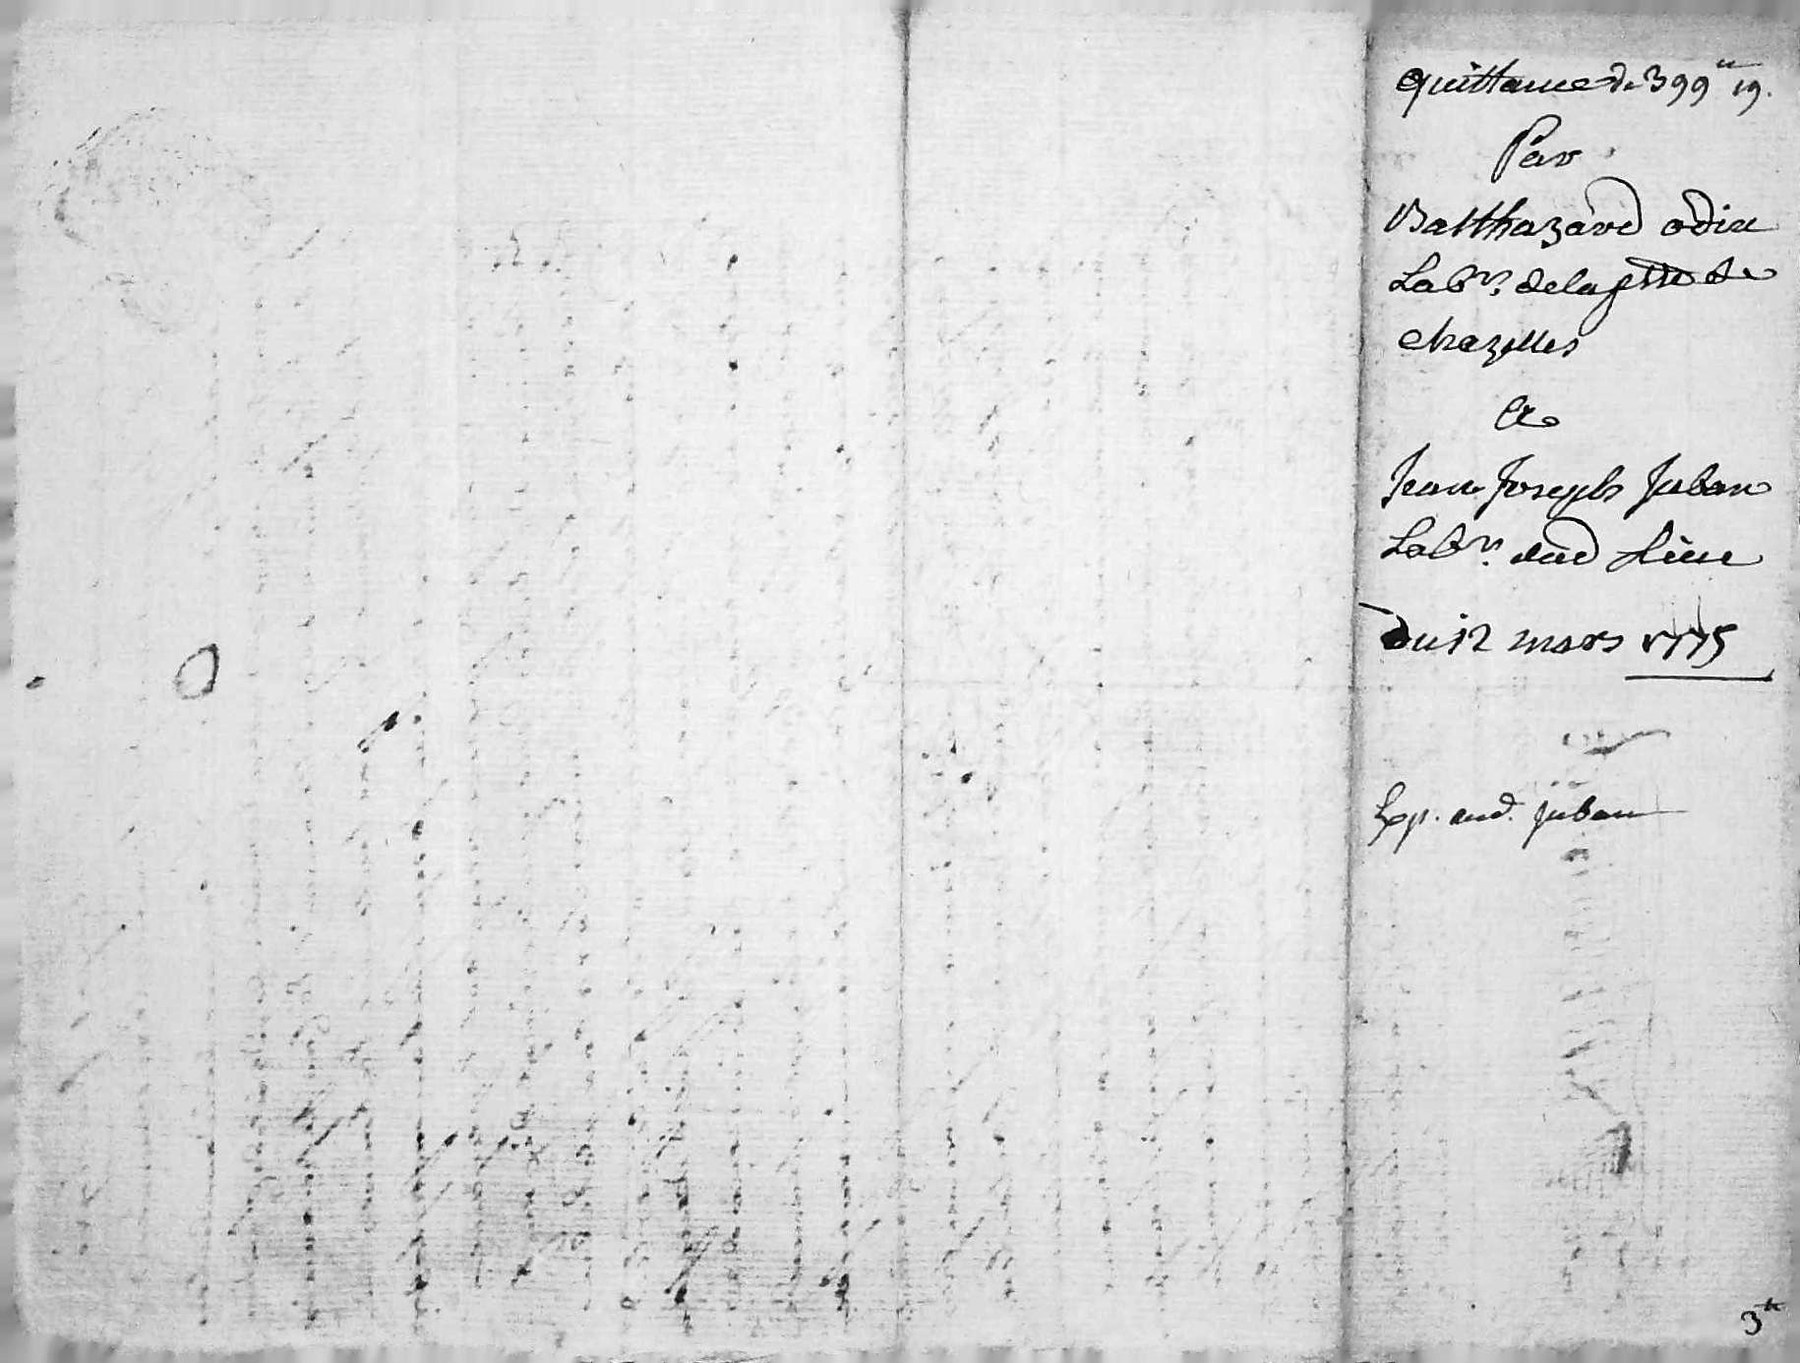 quittance de 399ᵗᵗ 19.
Par
Balthazard odin
Labʳ. de la psse de
chazelles
A
Jean Joseph Juban
Labʳ. dud lieu
Du 12 mars 1775
Exp. aud. Juban
3ᵗᵗ